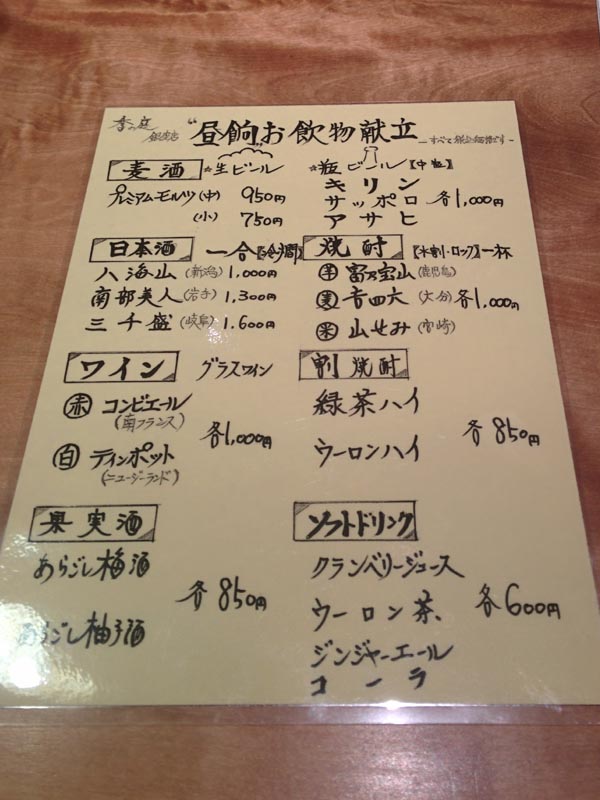 香の庭
銀座店
“昼餉お飲物献立”
－すべて税込価格です－
麦酒 ☆生ビール
プレミアムモルツ(中) 950円
(小) 750円
☆瓶ビール【中瓶】
キリン
サッポロ 各1,000円
アサヒ
日本酒 一合【冷・燗】
八海山(新潟) 1,000円
南部美人(岩手) 1,300円
三千盛(岐阜) 1,600円
焼酎 【水割・ロック】一杯
芋 富乃宝山(鹿児島)
麦 吉四六(大分) 各1,000円
米 山せみ(宮崎)
ワイン グラスワイン
赤 コンビエール
(南フランス)
各1,000円
白 ティンポット
(ニュージーランド)
割焼酎
緑茶ハイ
各850円
ウーロンハイ
果実酒
あらごし梅酒
各850円
あらごし柚子酒
ソフトドリンク
クランベリージュース
ウーロン茶 各600円
ジンジャーエール
コーラ